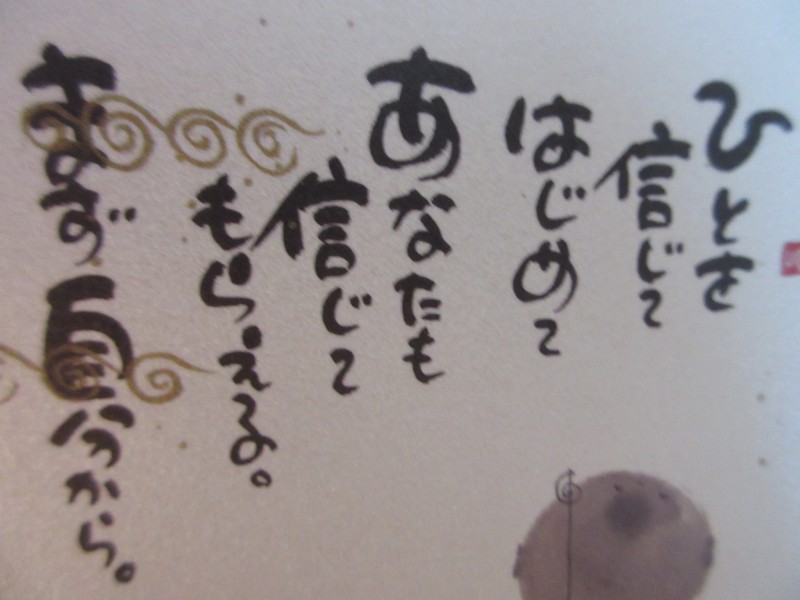 ひとを
信じて
はじめて
あなたも
信じて
もらえる。
まず自分から。